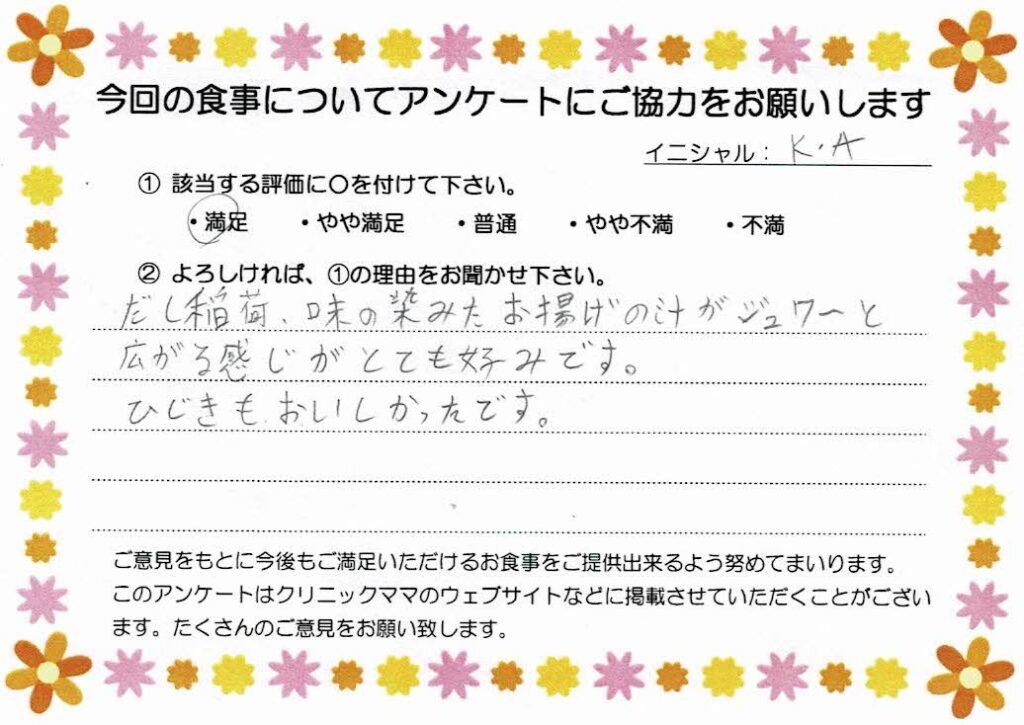 今回の食事についてアンケートにご協力をお願いします
イニシャル： K.A
① 該当する評価に〇を付けて下さい。
・満足 ・やや満足 ・普通 ・やや不満 ・不満
② よろしければ、①の理由をお聞かせ下さい。
だし稲荷、味の染みたお揚げの汁がジュワーと
広がる感じがとても好みです。
ひじきもおいしかったです。
ご意見をもとに今後もご満足いただけるお食事をご提供出来るよう努めてまいります。
このアンケートはクリニックママのウェブサイトなどに掲載させていただくことがござい
ます。たくさんのご意見をお願い致します。